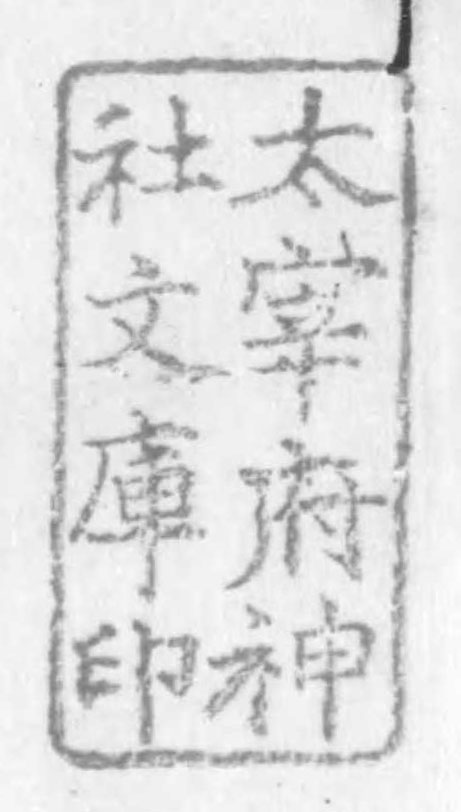 太宰府神
社文庫印